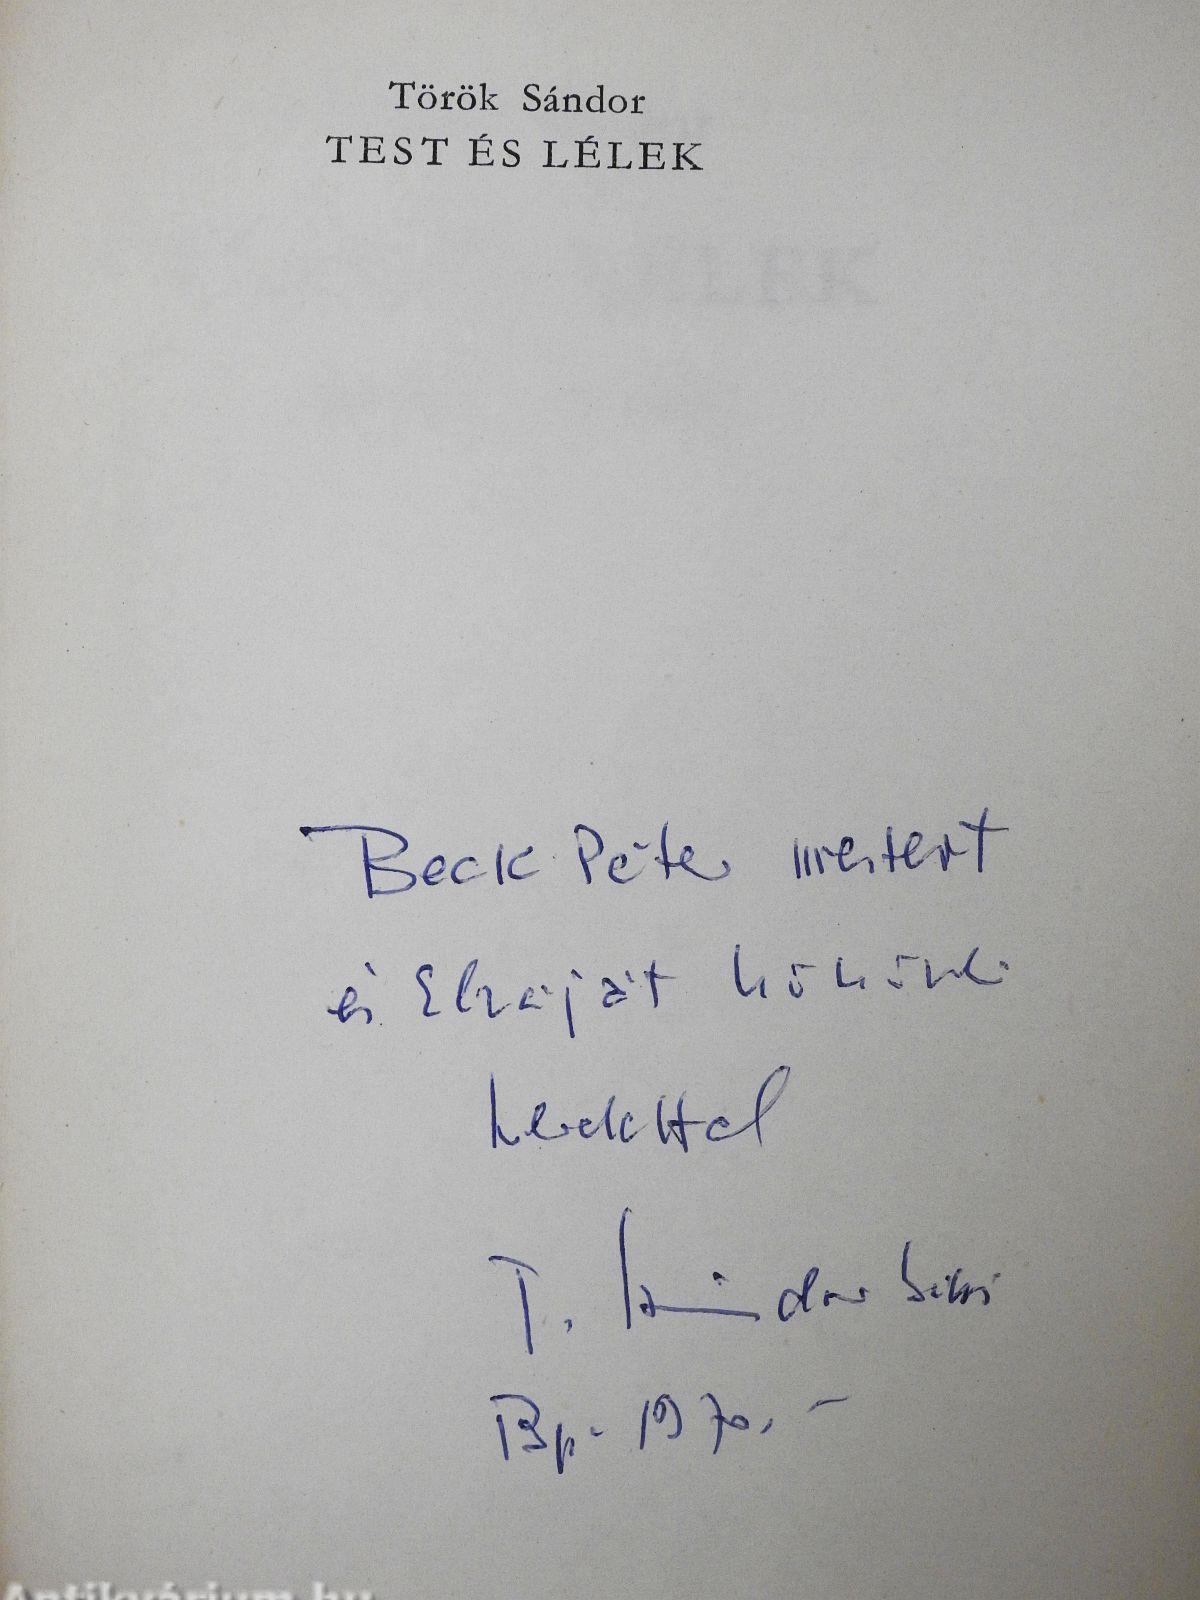 Török Sándor
TEST ÉS LÉLEK
Beck Péter mestert
és Elzáját
T. Sándor bácsi
Bp. 1970. –
Antikvárium.hu